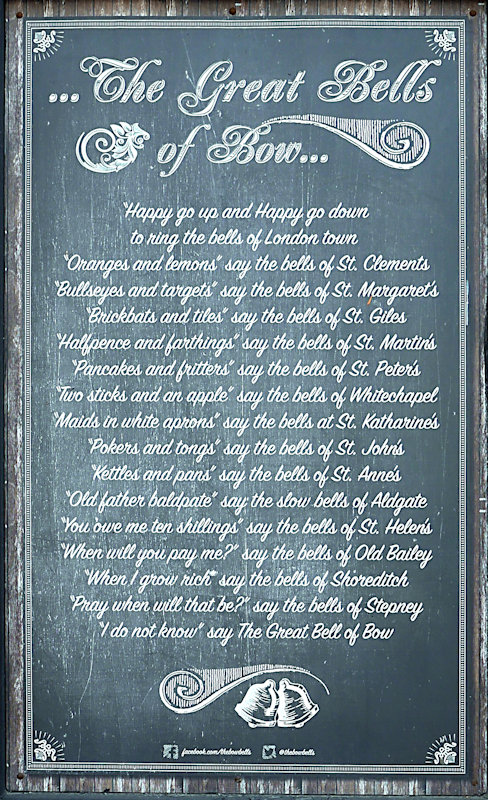 ...The Great Bells
of Bow...
"Happy go up and Happy go down
to ring the bells of London town
"Oranges and lemons" say the bells of St. Clements
"Bullseyes and targets" say the bells of St. Margaret's
"Brickbats and tiles" say the bells of St. Giles
"Halfpence and farthings" say the bells of St. Martin's
"Pancakes and fritters" say the bells of St. Peter's
"Two sticks and an apple" say the bells of Whitechapel
"Maids in white aprons" say the bells at St. Katharine's
"Pokers and tongs" say the bells of St. John's
"Kettles and pans" say the bells of St. Anne's
"Old father baldpate" say the slow bells of Aldgate
"You owe me ten shillings" say the bells of St. Helen's
"When will you pay me?" say the bells of Old Bailey
"When I grow rich" say the bells of Shoreditch
"Pray when will that be?" say the bells of Stepney
"I do not know" say The Great Bell of Bow
facebook.com/thebowbells @thebowbells